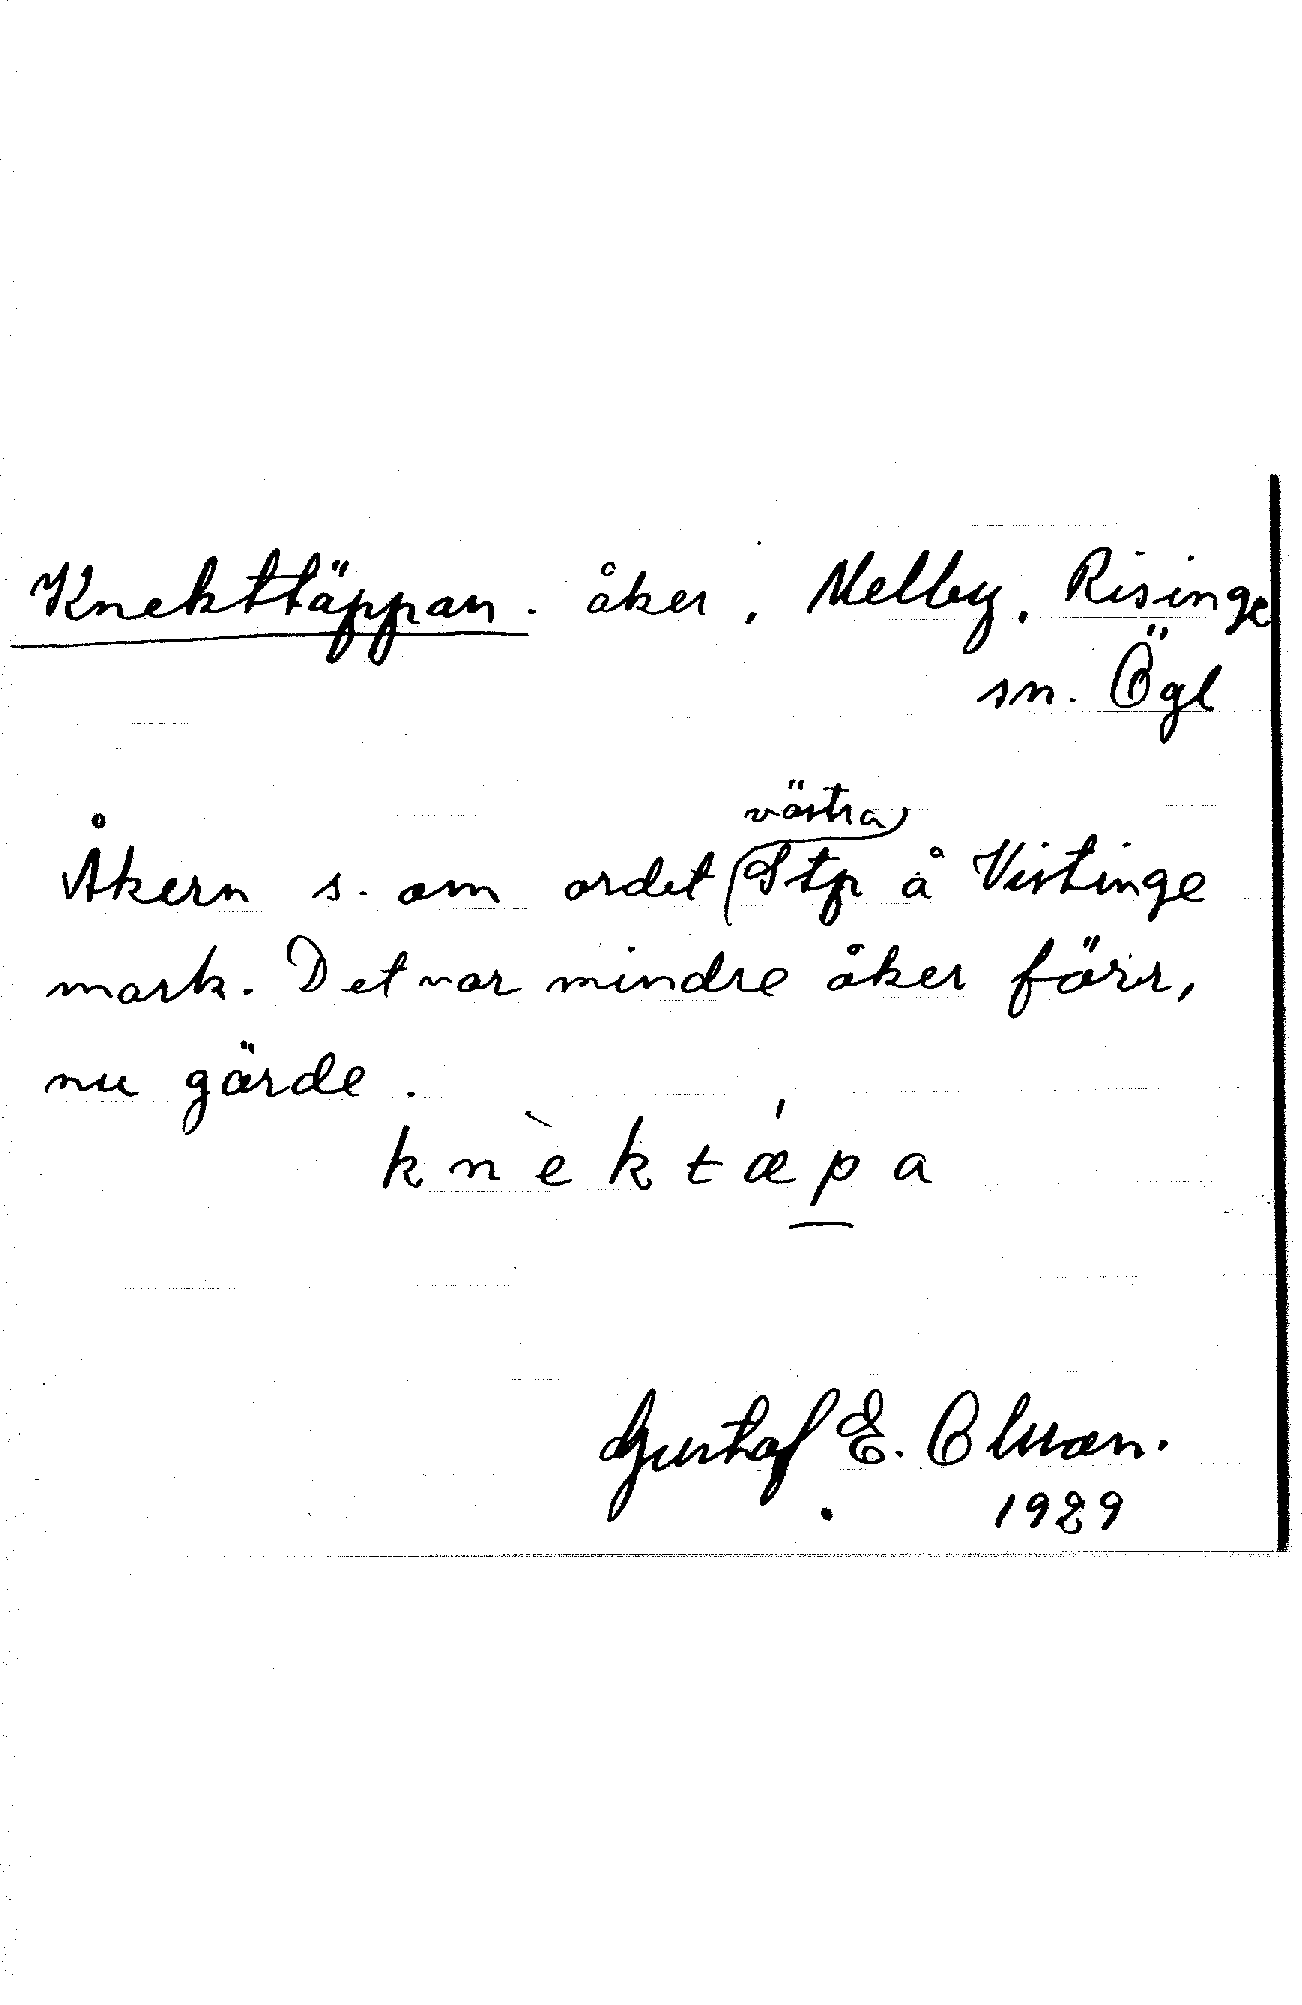 Knekttäppan. åker. Melby. Risinge
sn. Ögl
västra
Åkern s. om ordet Stp å Vistinge
mark. Det var mindre åker förr,
nu gärde.
knὲktǽpa
Gustaf E.
1929